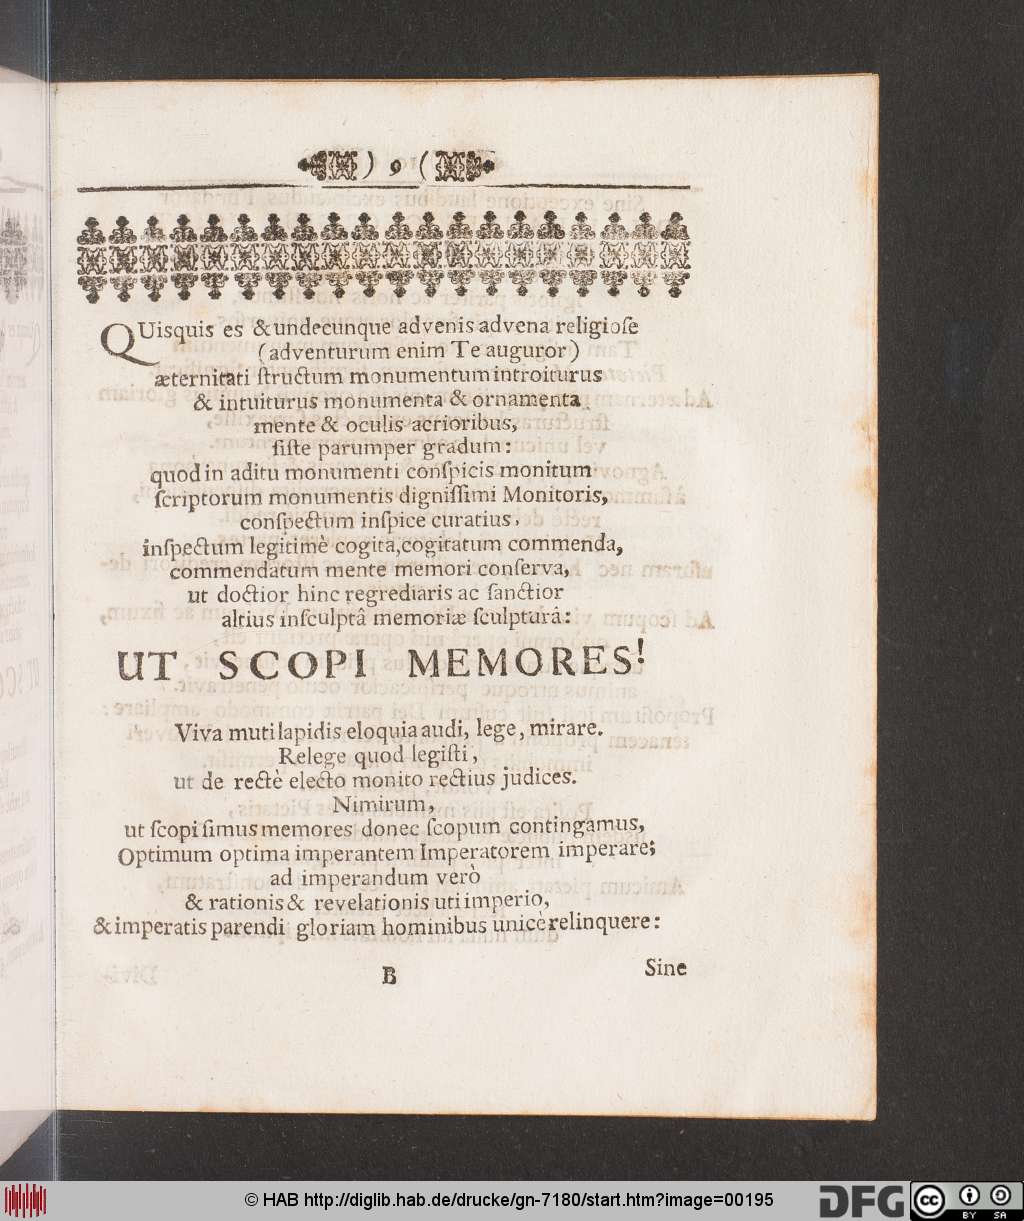 ) 9 (
QUisquis es & undecunque advenis advena religioſe
(adventurum enim Te auguror)
æternitati ſtructum monumentum introiturus
& intuiturus monumenta & ornamenta
mente & oculis acrioribus,
ſiſte parumper gradum:
quod in aditu monumenti conſpicis monitum
ſcriptorum monumentis digniſſimi Monitoris,
conſpectum inſpice curatius,
inſpectum legitimè cogita, cogitatum commenda,
commendatum mente memori conſerva,
ut doctior hinc regrediaris ac ſanctior
altius inſculptâ memoriæ ſculpturâ:
UT SCOPI MEMORES!
Viva muti lapidis eloquia audi, lege, mirare.
Relege quod legiſti,
ut de rectè electo monito rectius judices.
Nimirum,
ut ſcopi ſimus memores donec ſcopum contingamus,
Optimum optima imperantem Imperatorem imperare;
ad imperandum verò
& rationis & revelationis uti imperio,
& imperatis parendi gloriam hominibus unicè relinquere:
B
Sine
© HAB http://diglib.hab.de/drucke/gn-7180/start.htm?image=00195
DFG
cc BY SA